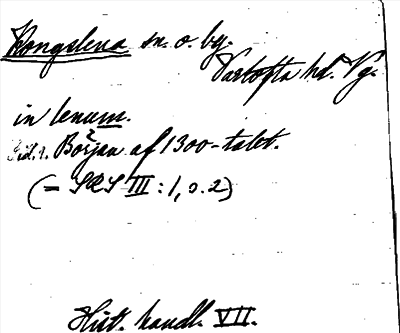 Kongslena sn. o. by.
Vartofta hd. Vg.
in lenum.
Början af 1300-talet.
(= SRS III: 1, s. 2)
Hist. handl. VII.